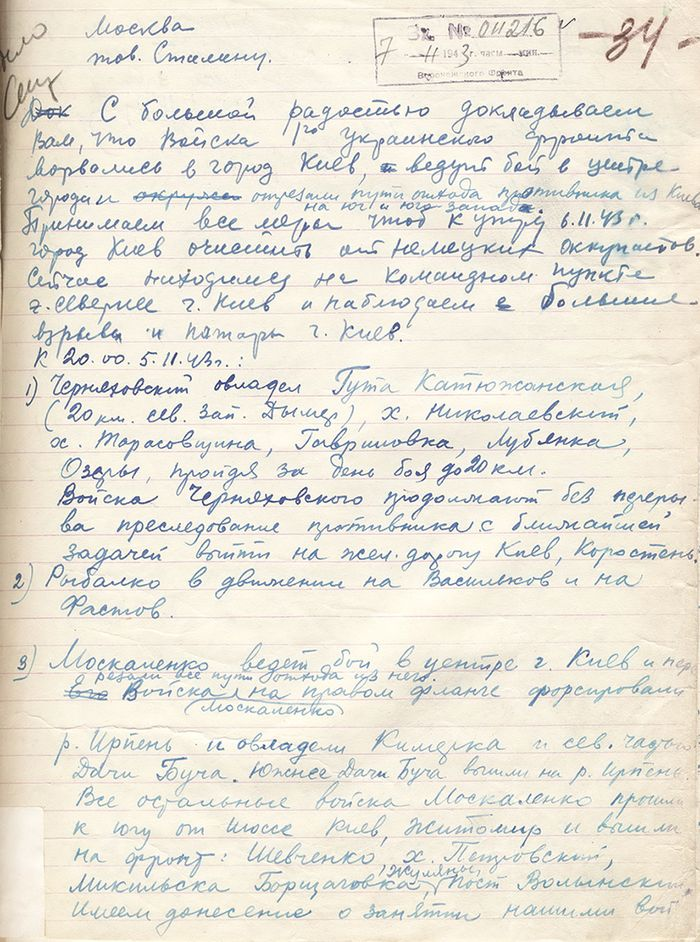 Москва
тов. Сталину.
Вх. № 011216
7 11 1943 г. час. мин.
Воронежского Фронта
-34-
С большой радостью докладываем
Вам, что войска 1го Украинского фронта
ворвались в город Киев, ведут бой в центре
города и отрезали пути отхода противника из Киева
на юг и юго запад.
Принимаем все меры чтоб к утру 6.11.43 г.
город Киев очистить от немецких оккупантов.
Сейчас находимся на командном пункте
севернее г. Киев и наблюдаем большие
взрывы и пожары г. Киев.
К 20.00. 5.11.43г.:
1) Черняховский овладел Гута Катюжанская,
(20 км. сев. зап. Дымер), х. Николаевский,
х. Тарасовщина, Гавриловка, Лубянка,
Озеры, пройдя за день боя до 20 км.
Войска Черняховского продолжают без переры
ва преследование противника с ближайшей
задачей выйти на жел. дорогу Киев, Коростень.
2) Рыбалко в движении на Васильков и на
Фастов.
3) Москаленко ведет бой в центре г. Киев и пере
резали все пути отхода из него.
Войска Москаленко на правом фланге форсировали
р. Ирпень и овладели Кимерка и сев. частью
Дачи Буча. Южнее Дачи Буча вышли на р. Ирпень.
Все остальные войска Москаленко прошли
к югу от шоссе Киев, Житомир и вышли
на фронт: Шевченко, х. Петровский,
Микильска Борщаговка, Жуляны, Пост Волынский.
Имеем донесение о занятии нашими вой